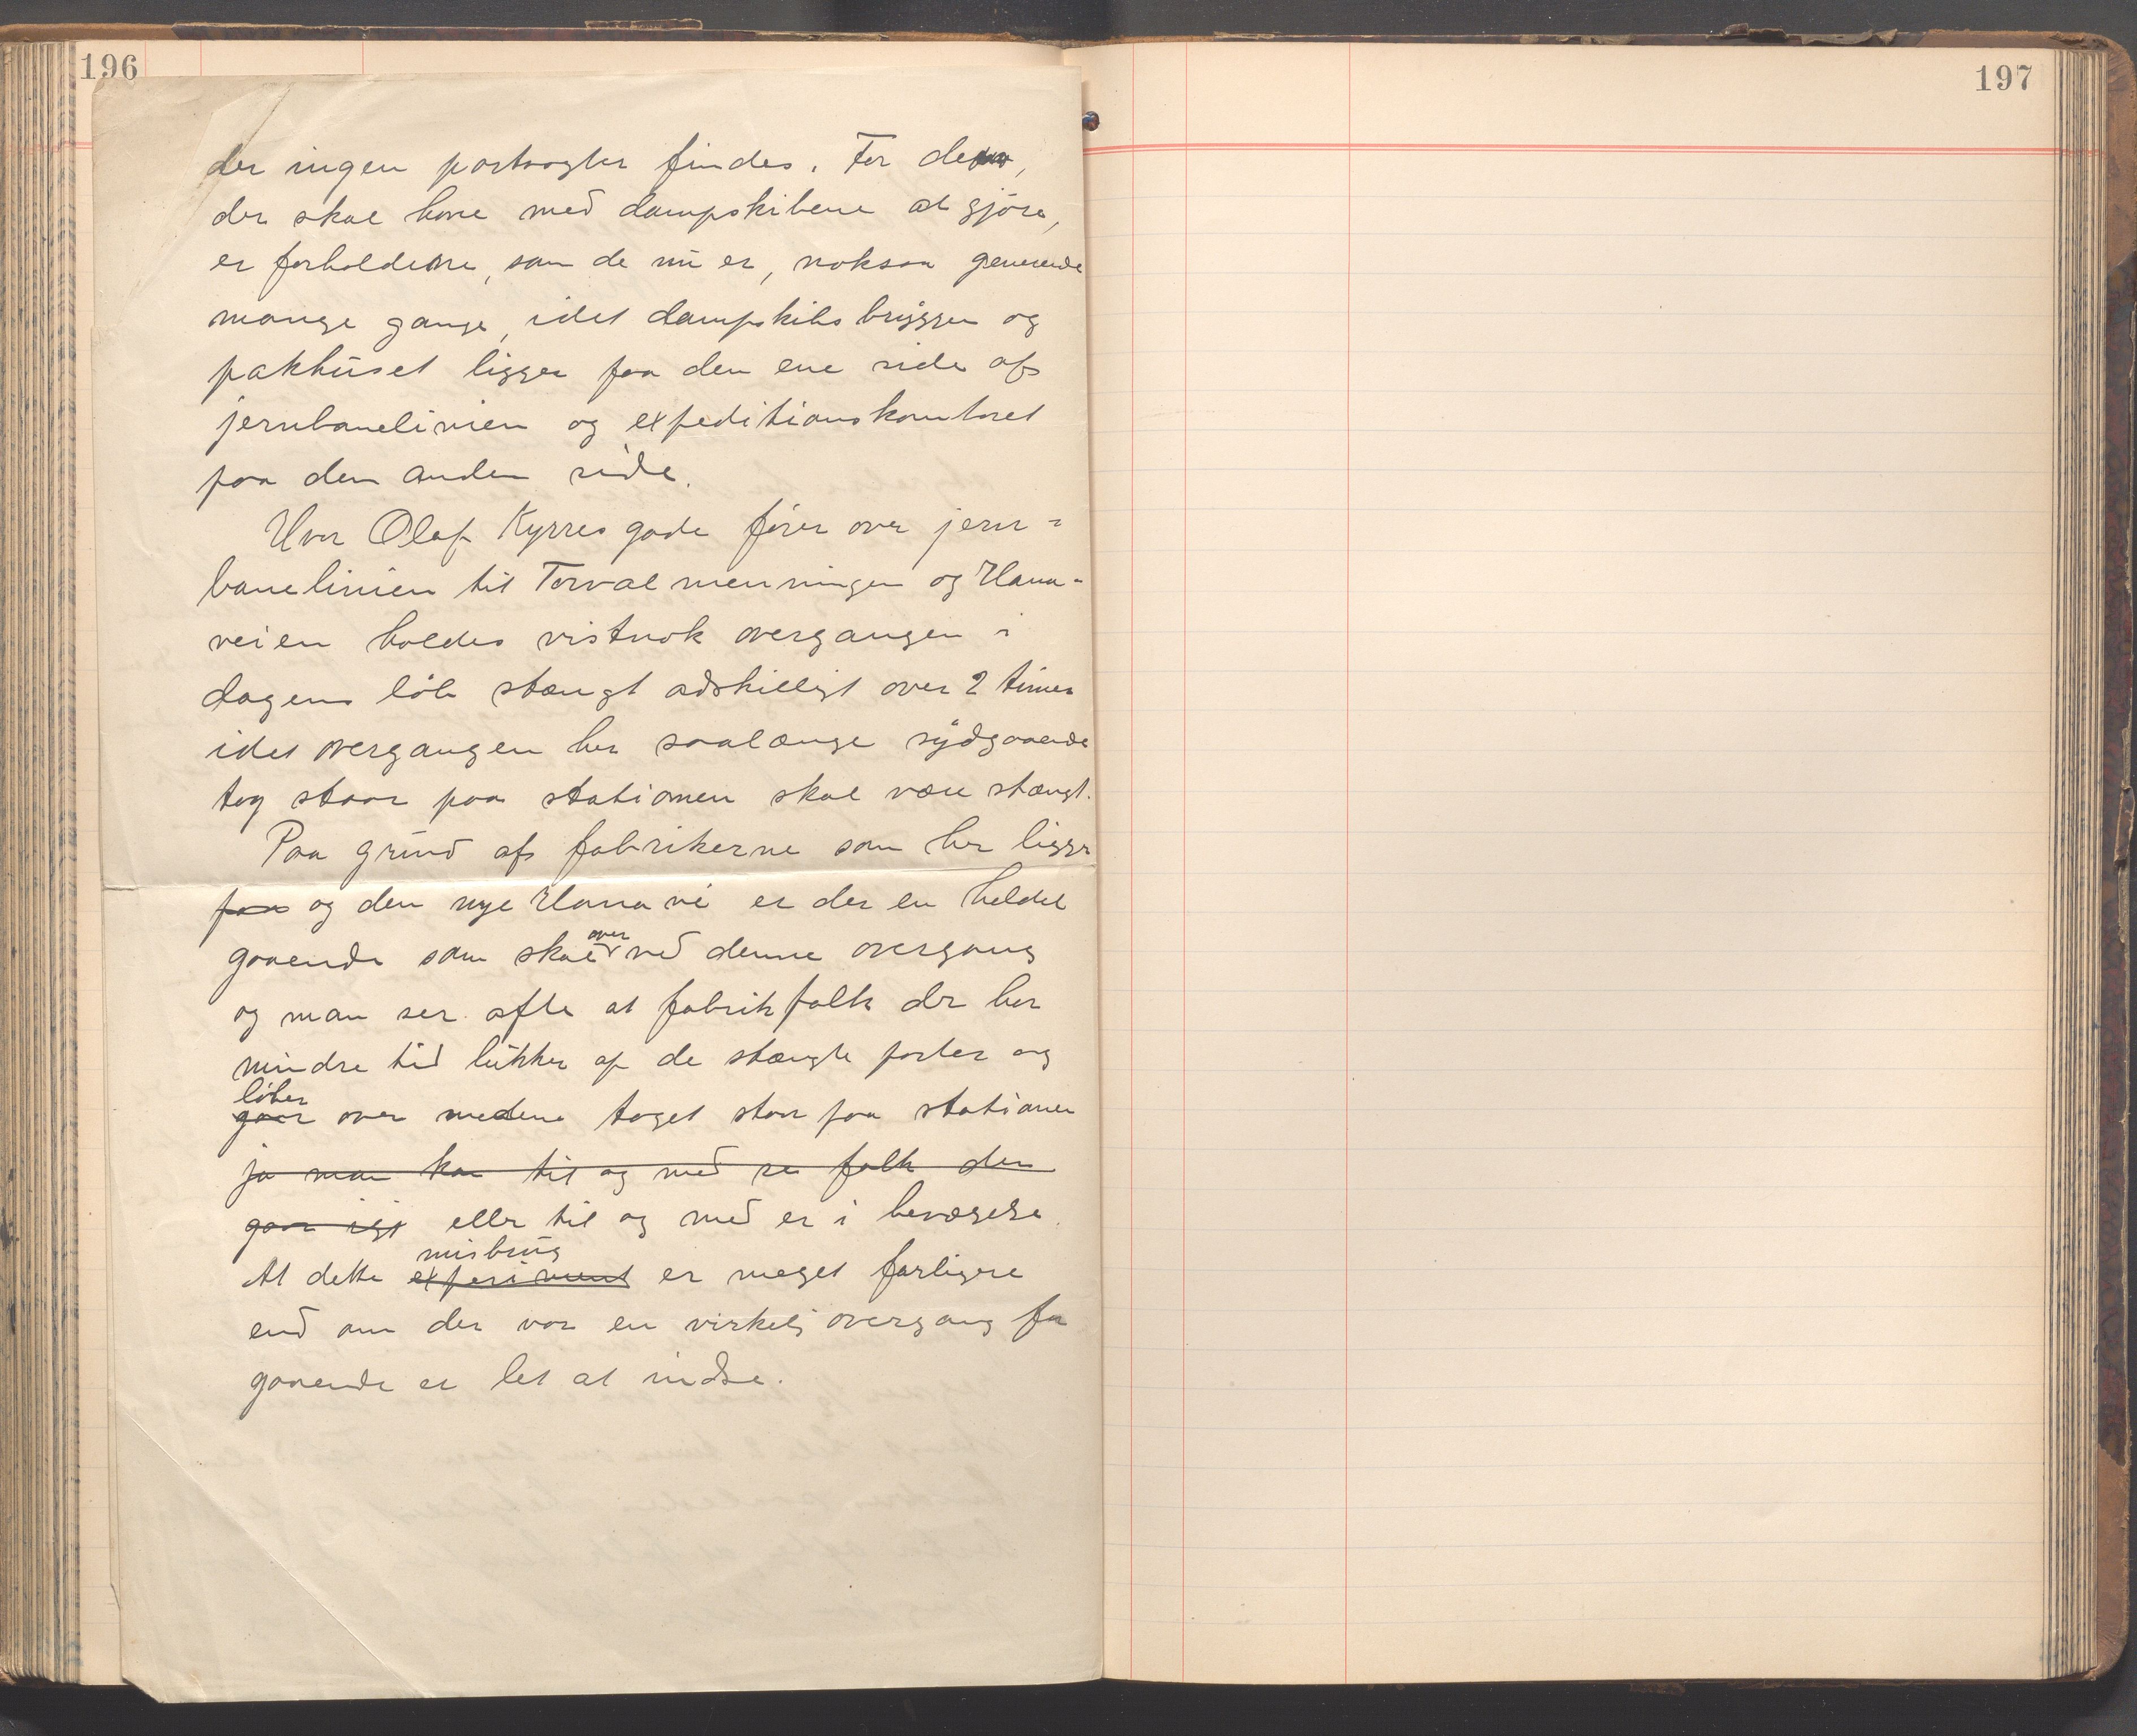 196
197
der ingen portvogter findes. For dem,
der skal have med dampskibene at gjøre,
er forholdene, som de nu er, noksaa generende
mange gange, idet dampskibsbryggen og
pakhuset ligger paa den ene side af
jernbanelinien og expeditionskontoret
paa den anden side.
Hvor Olaf Kyrres gade fører over jern=
banelinien til Torvalmenningen og Hana-
veien holdes vistnok overgangen i
dagens løb stængt adskilligt over 2 timer
idet overgangen her saalænge sydgaaende
tog staar paa stationen skal være stængt.
Paa grund af fabrikerne som her ligger
paa og den nye Hanavei er der en heldel
gaaende som skal over ved denne overgang
og man ser ofte at fabrikfolk der har
mindre tid lukker op de stængte porter og
løber
gaar over medens toget staar paa stationen
ja man kan til og med se folk der
gaar igj eller til og med er i bevægelse.
misbrug
At dette experiment er meget farligere
end om der var en virkelig overgang for
gaaende er let at indse.